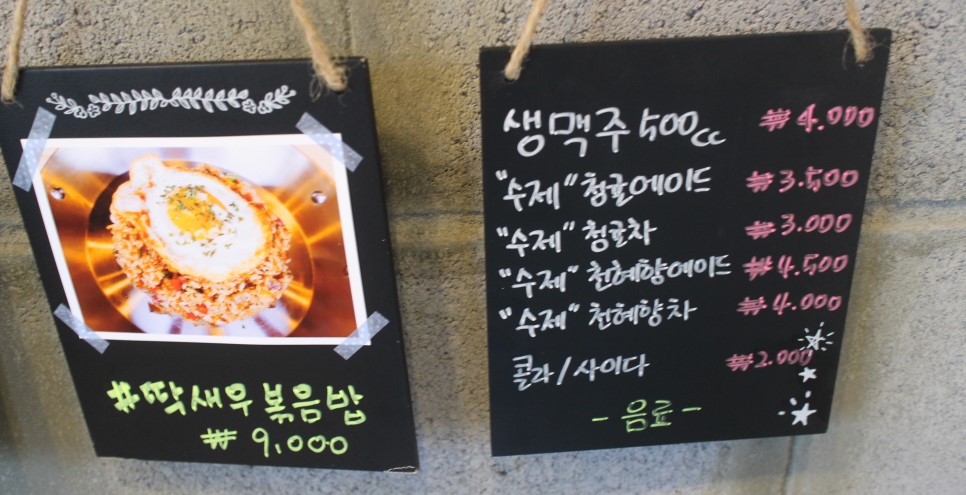 #딱새우볶음밥
₩9,000
생맥주 500cc ₩4.000
"수제" 청귤에이드 ₩3.500
"수제" 청귤차 ₩3.000
"수제" 천혜향에이드 ₩4.500
"수제" 천혜향차 ₩4.000
콜라/사이다 ₩2.000
- 음료 -